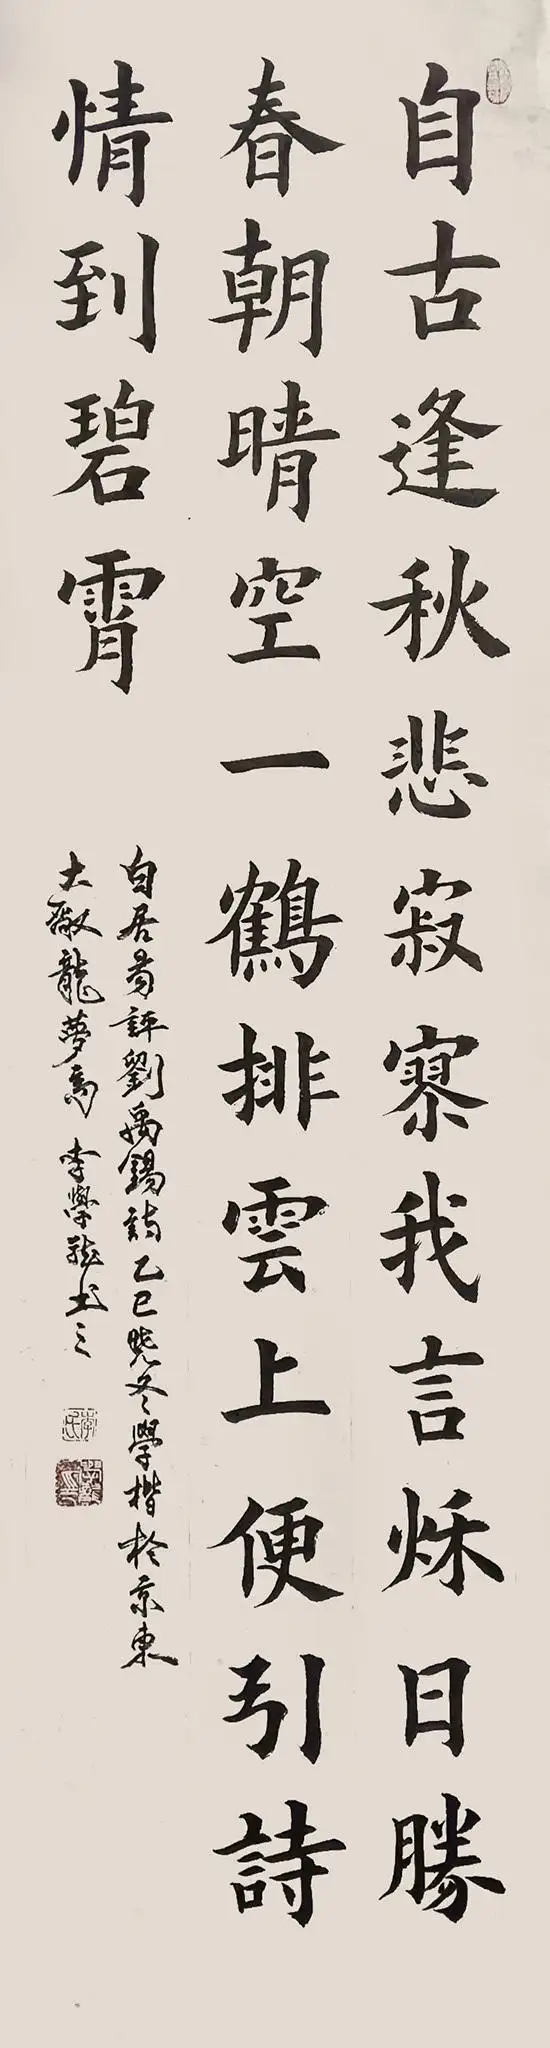 自古逢秋悲寂寥我言秌日勝
春朝晴空一鶴排雲上便引詩
情到碧霄
白居易評劉禹錫詩乙巳晚冬學楷於京東
大廠龍夢馬李學